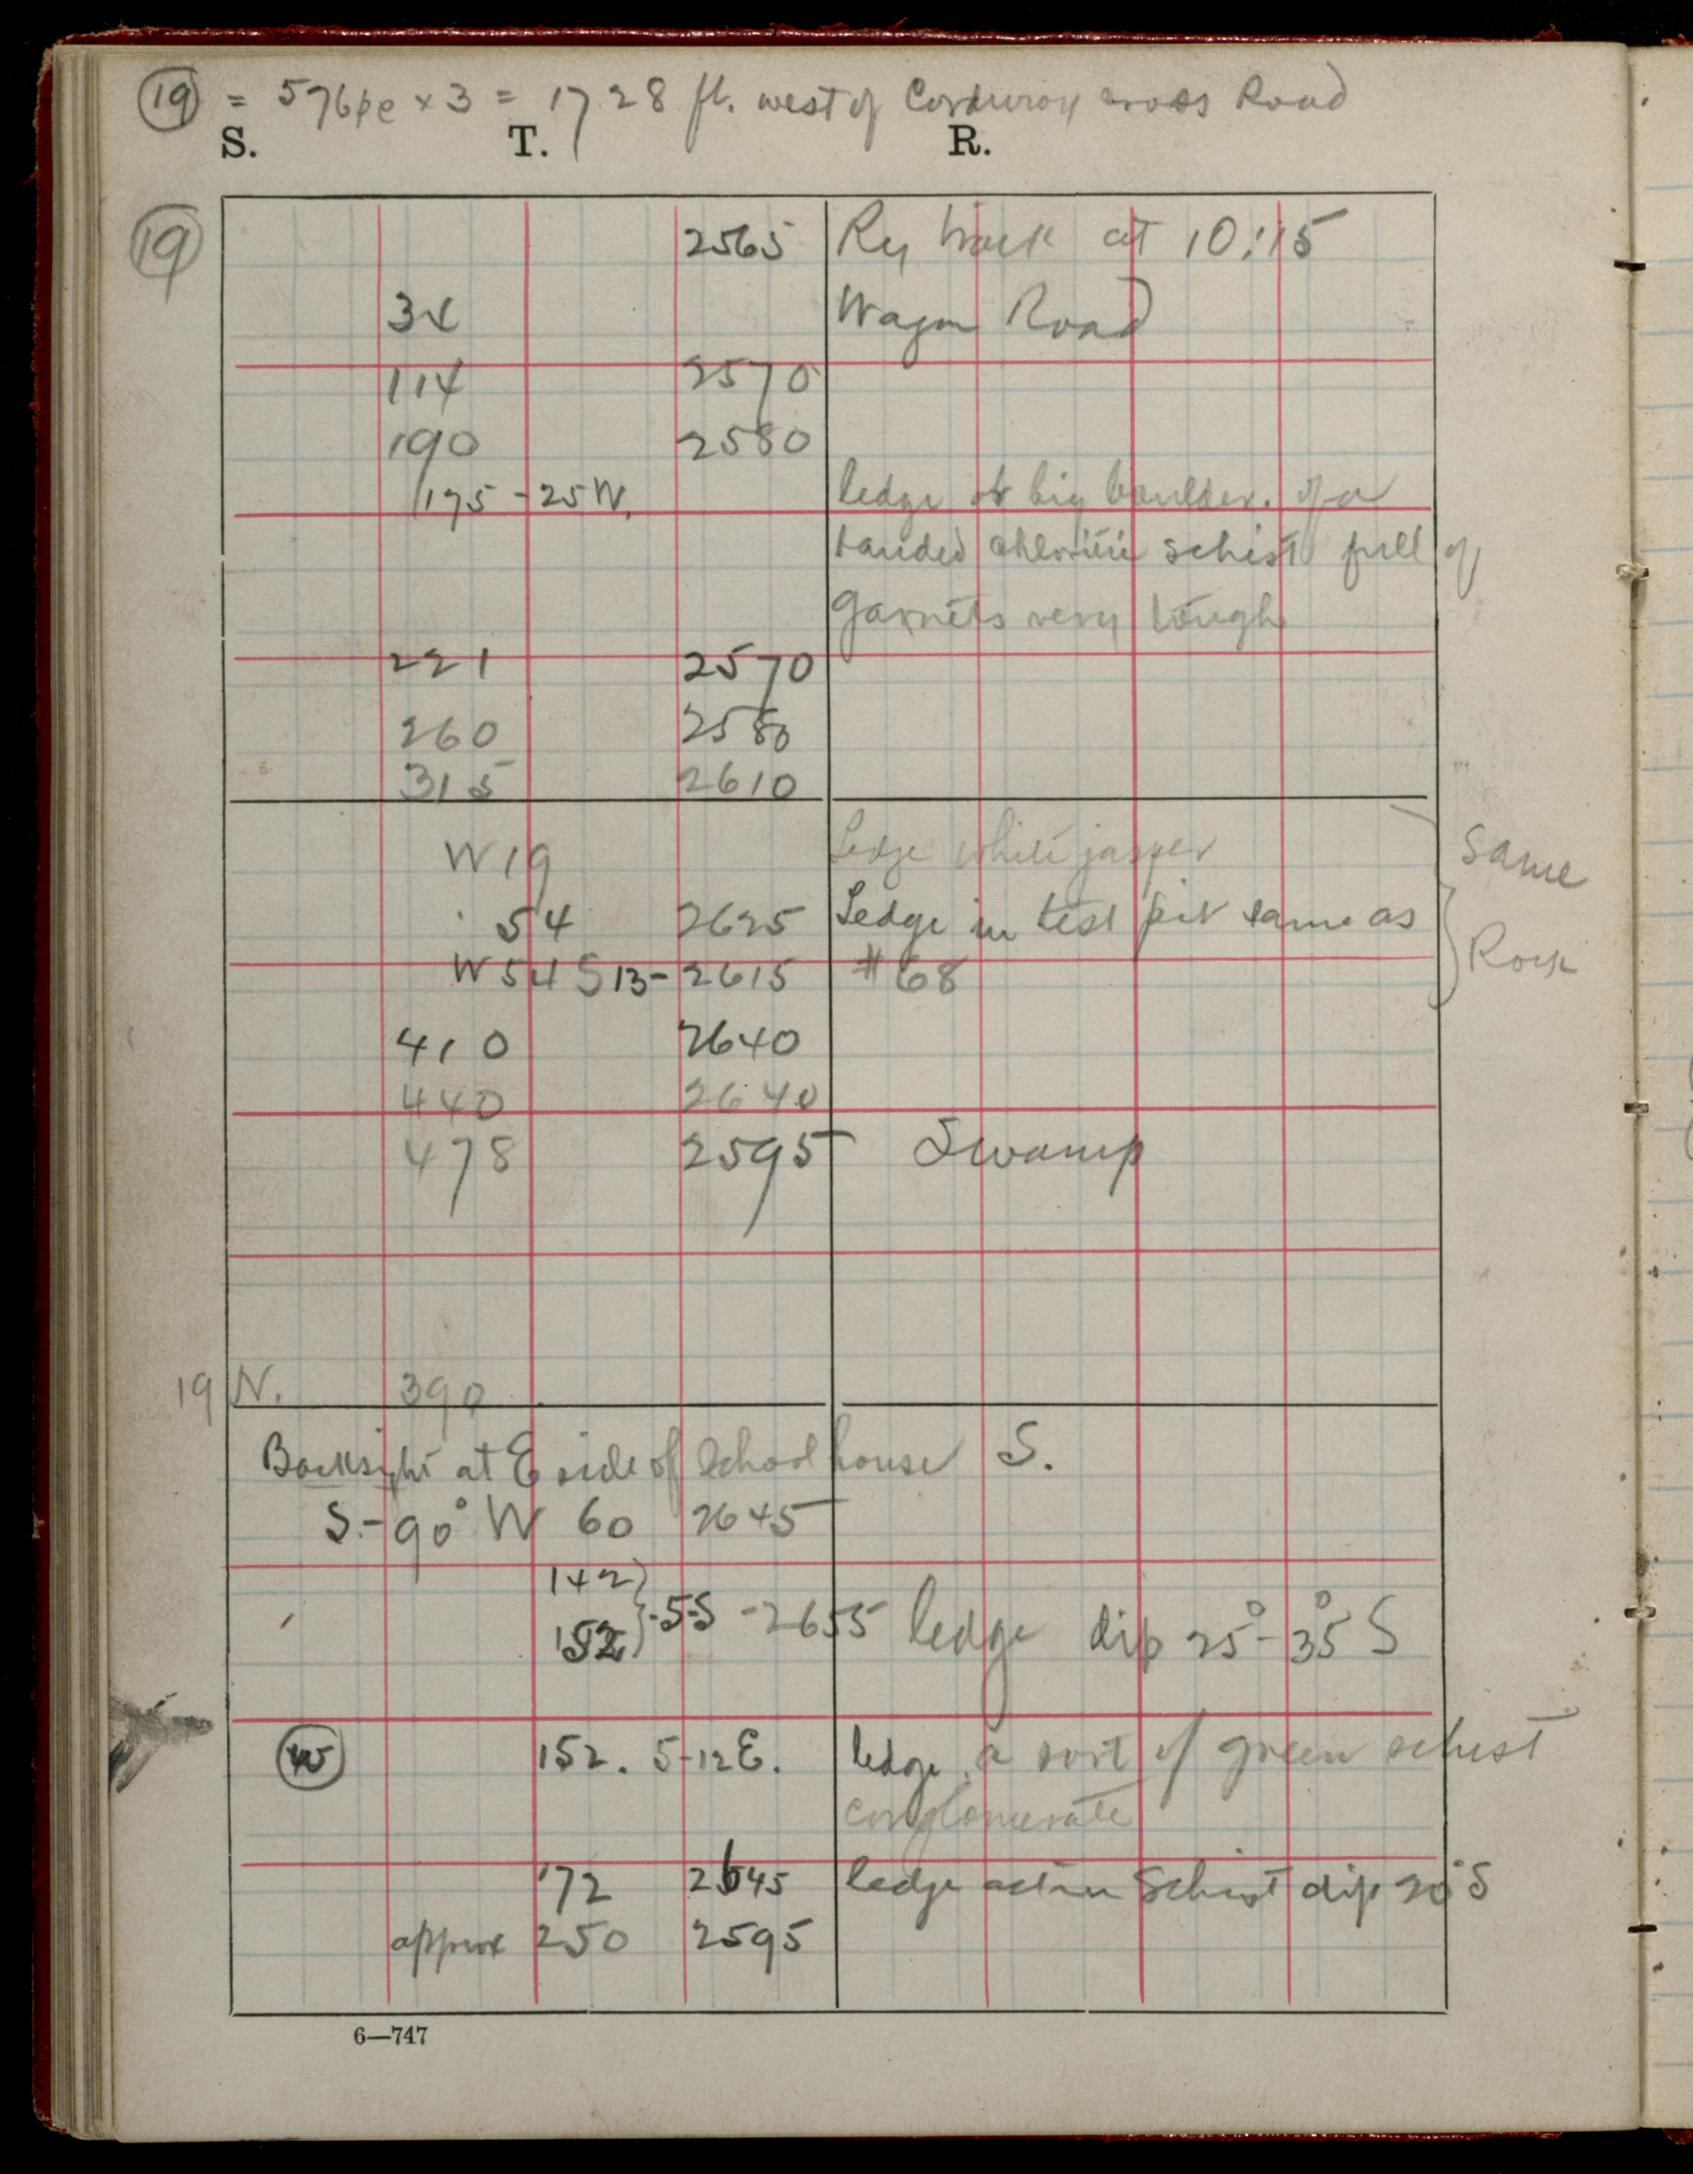 (19) = 576pc × 3 = 1728 ft. west of Corduroy cross Road
S. T. R.
(19) 2565 Ry track at 10:15
34 Wagon Road
114 2570
190 2580
175 - 25 W. ledge or big boulder. of a
banded chloritic schist full of
garnets very tough
221 2570
260 2580
315 2610
W 19 Ledge white jasper
54 2625 Ledge in test pit same as
W 54 S 13 - 2615 # 68
Same
Rock
410 2640
440 2640
478 2595 Swamp
19 N. 390
Backsight at E side of school house S.
S. - 90° W 60 2645
142
152 } - 5 S - 2655 ledge dip 25° - 35° S
(W) 152. 5-12 E. ledge, a sort of green schist
conglomerate
172 2645 ledge actin schist dip 20° S
approx 250 2595
6—747